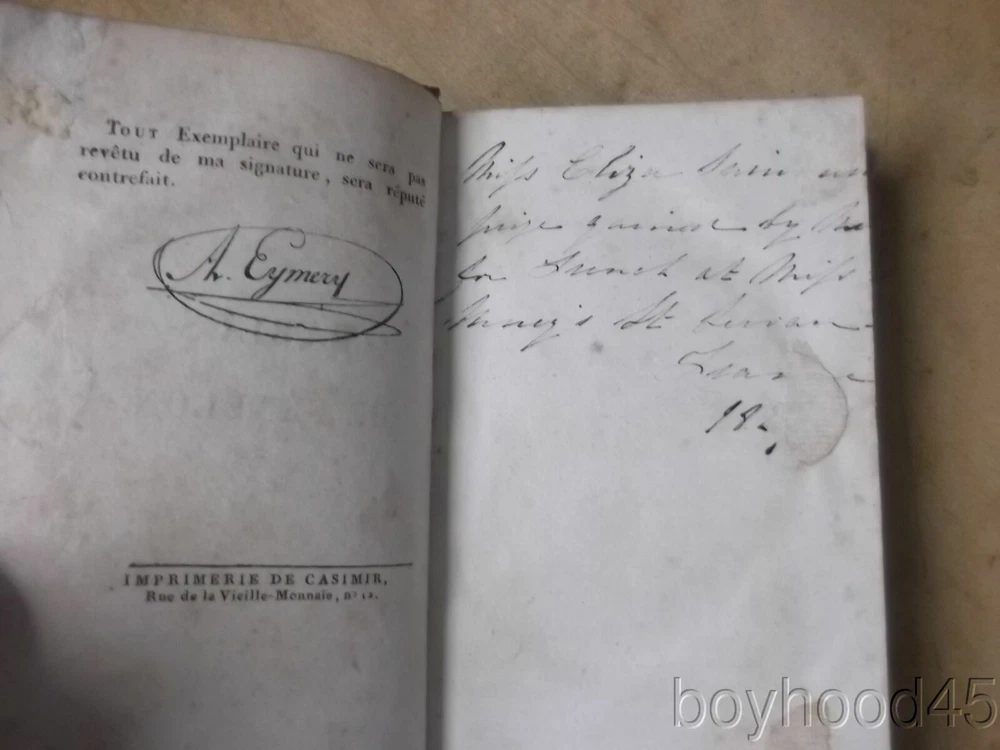 Tout Exemplaire qui ne sera pas
revêtu de ma signature, sera réputé
contrefait.
A. Eymery
IMPRIMERIE DE CASIMIR,
Rue de la Vieille-Monnaie, nº 12.
Miss Eliza
prize gained by
for French at Miss
St Servan
France
18
boyhood45